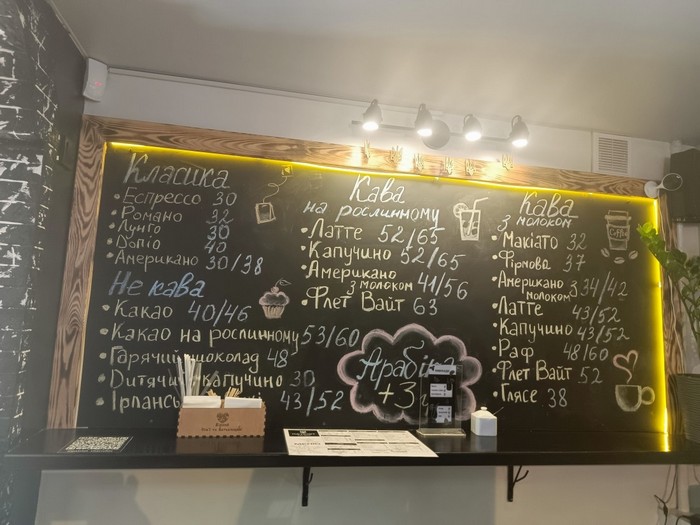 Класика
• Еспрессо 30
• Романо 32
• Лунго 30
• Допіо 40
• Американо 30/38
Не кава
• Какао 40/46
• Какао на рослинному 53/60
• Гарячий шоколад 48
• Дитячий капучино 30
• Ірланськ 43/52
Кава
на рослинному
• Латте 52/65
• Капучино 52/65
• Американо
з молоком 41/56
• Флет Вайт 63
Арабіка
+3
Кава
з молоком
• Макіато 32
• Фірмова 37
• Американо
з молоком 34/42
• Латте 43/52
• Капучино 43/52
• Раф 48/60
• Флет Вайт 52
• Глясе 38